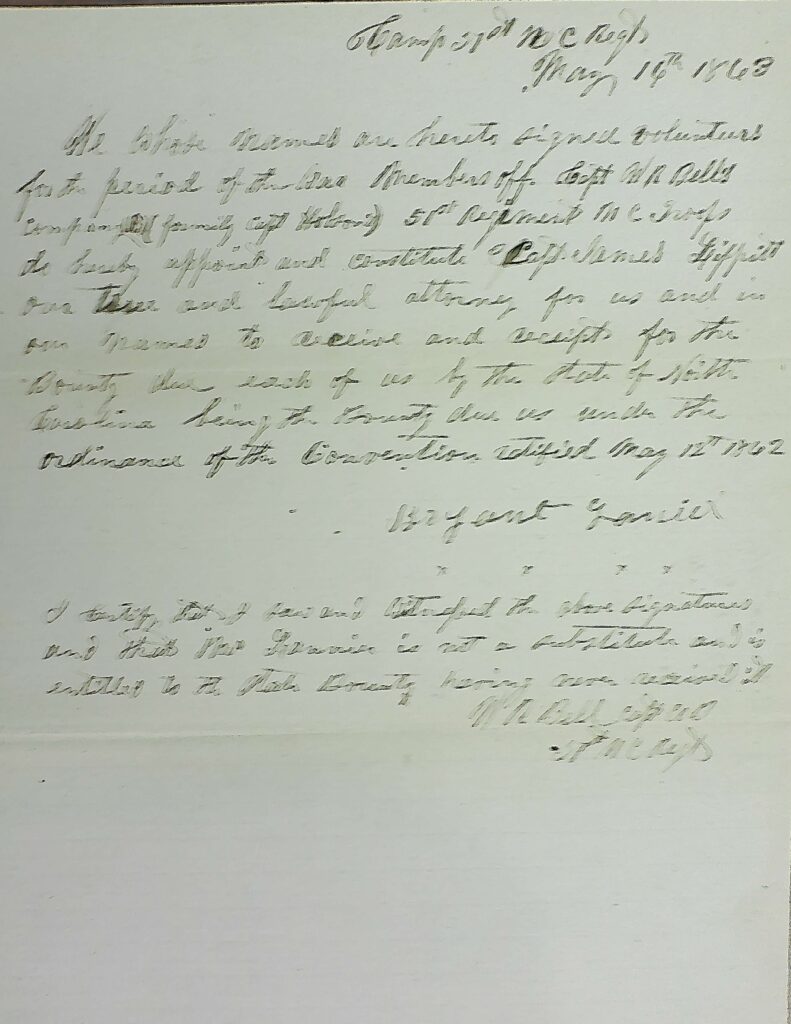 Camp 51st N C Regt
May 16th 1863
We whose names are hereto signed volunteers
for the period of the War Members off Capt W R Bell's
Company (formily Capt ) 51st Regiment N C Troops
do hereby appoint and constitute Capt James Lippitt
our true and lawful attorney for us and in
our names to receive and receipt for the
Bounty due each of us by the State of North
Carolina being the Bounty due us under the
ordinance of the Convention retified May 12th 1862
Bryant Lanier
" " " "
I certify that I saw and witnessed the above signatures
and that is not a substitute and is
entitled to the State Bounty having never received it
W R Bell Capt Co
51st N C Regt